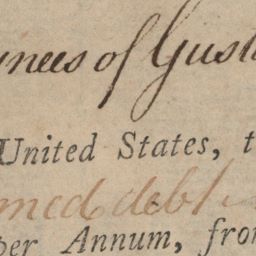 gnees of Gust
United States, t
med debt
per Annum, fro